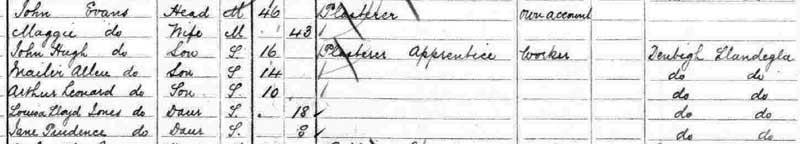 John Evans Head M 46 Plasterer own account
Maggie do Wife M 43
John Hugh do Son S. 16 Plasterer Apprentice Worker Denbigh Llandegla
Allen do Son S. 14 do do
Arthur Leonard do Son S. 10 do do
Louisa Lloyd Jones do Daur S. 18 do do
Jane Prudence do Daur S. 8 do do